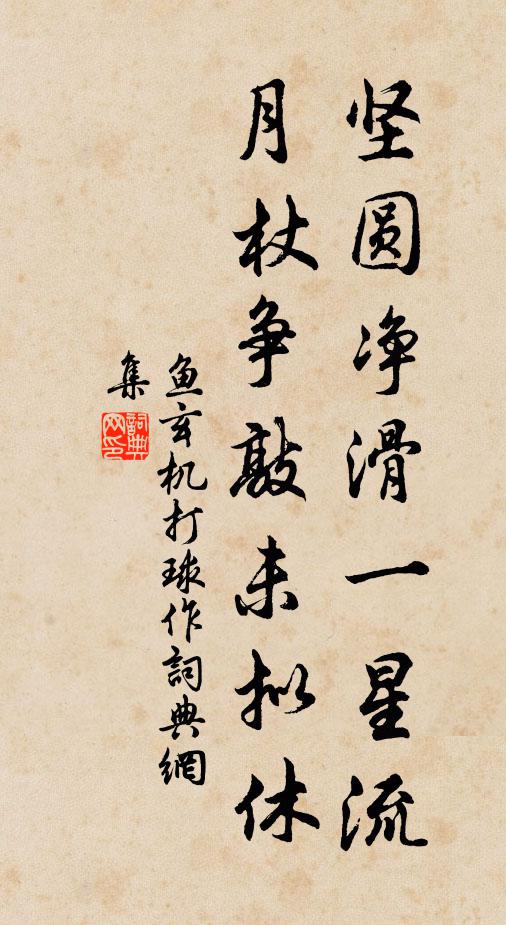 坚圆净滑一星流
月杖争敲未拟休
鱼玄机打球作詞典網
集
詞典
网印